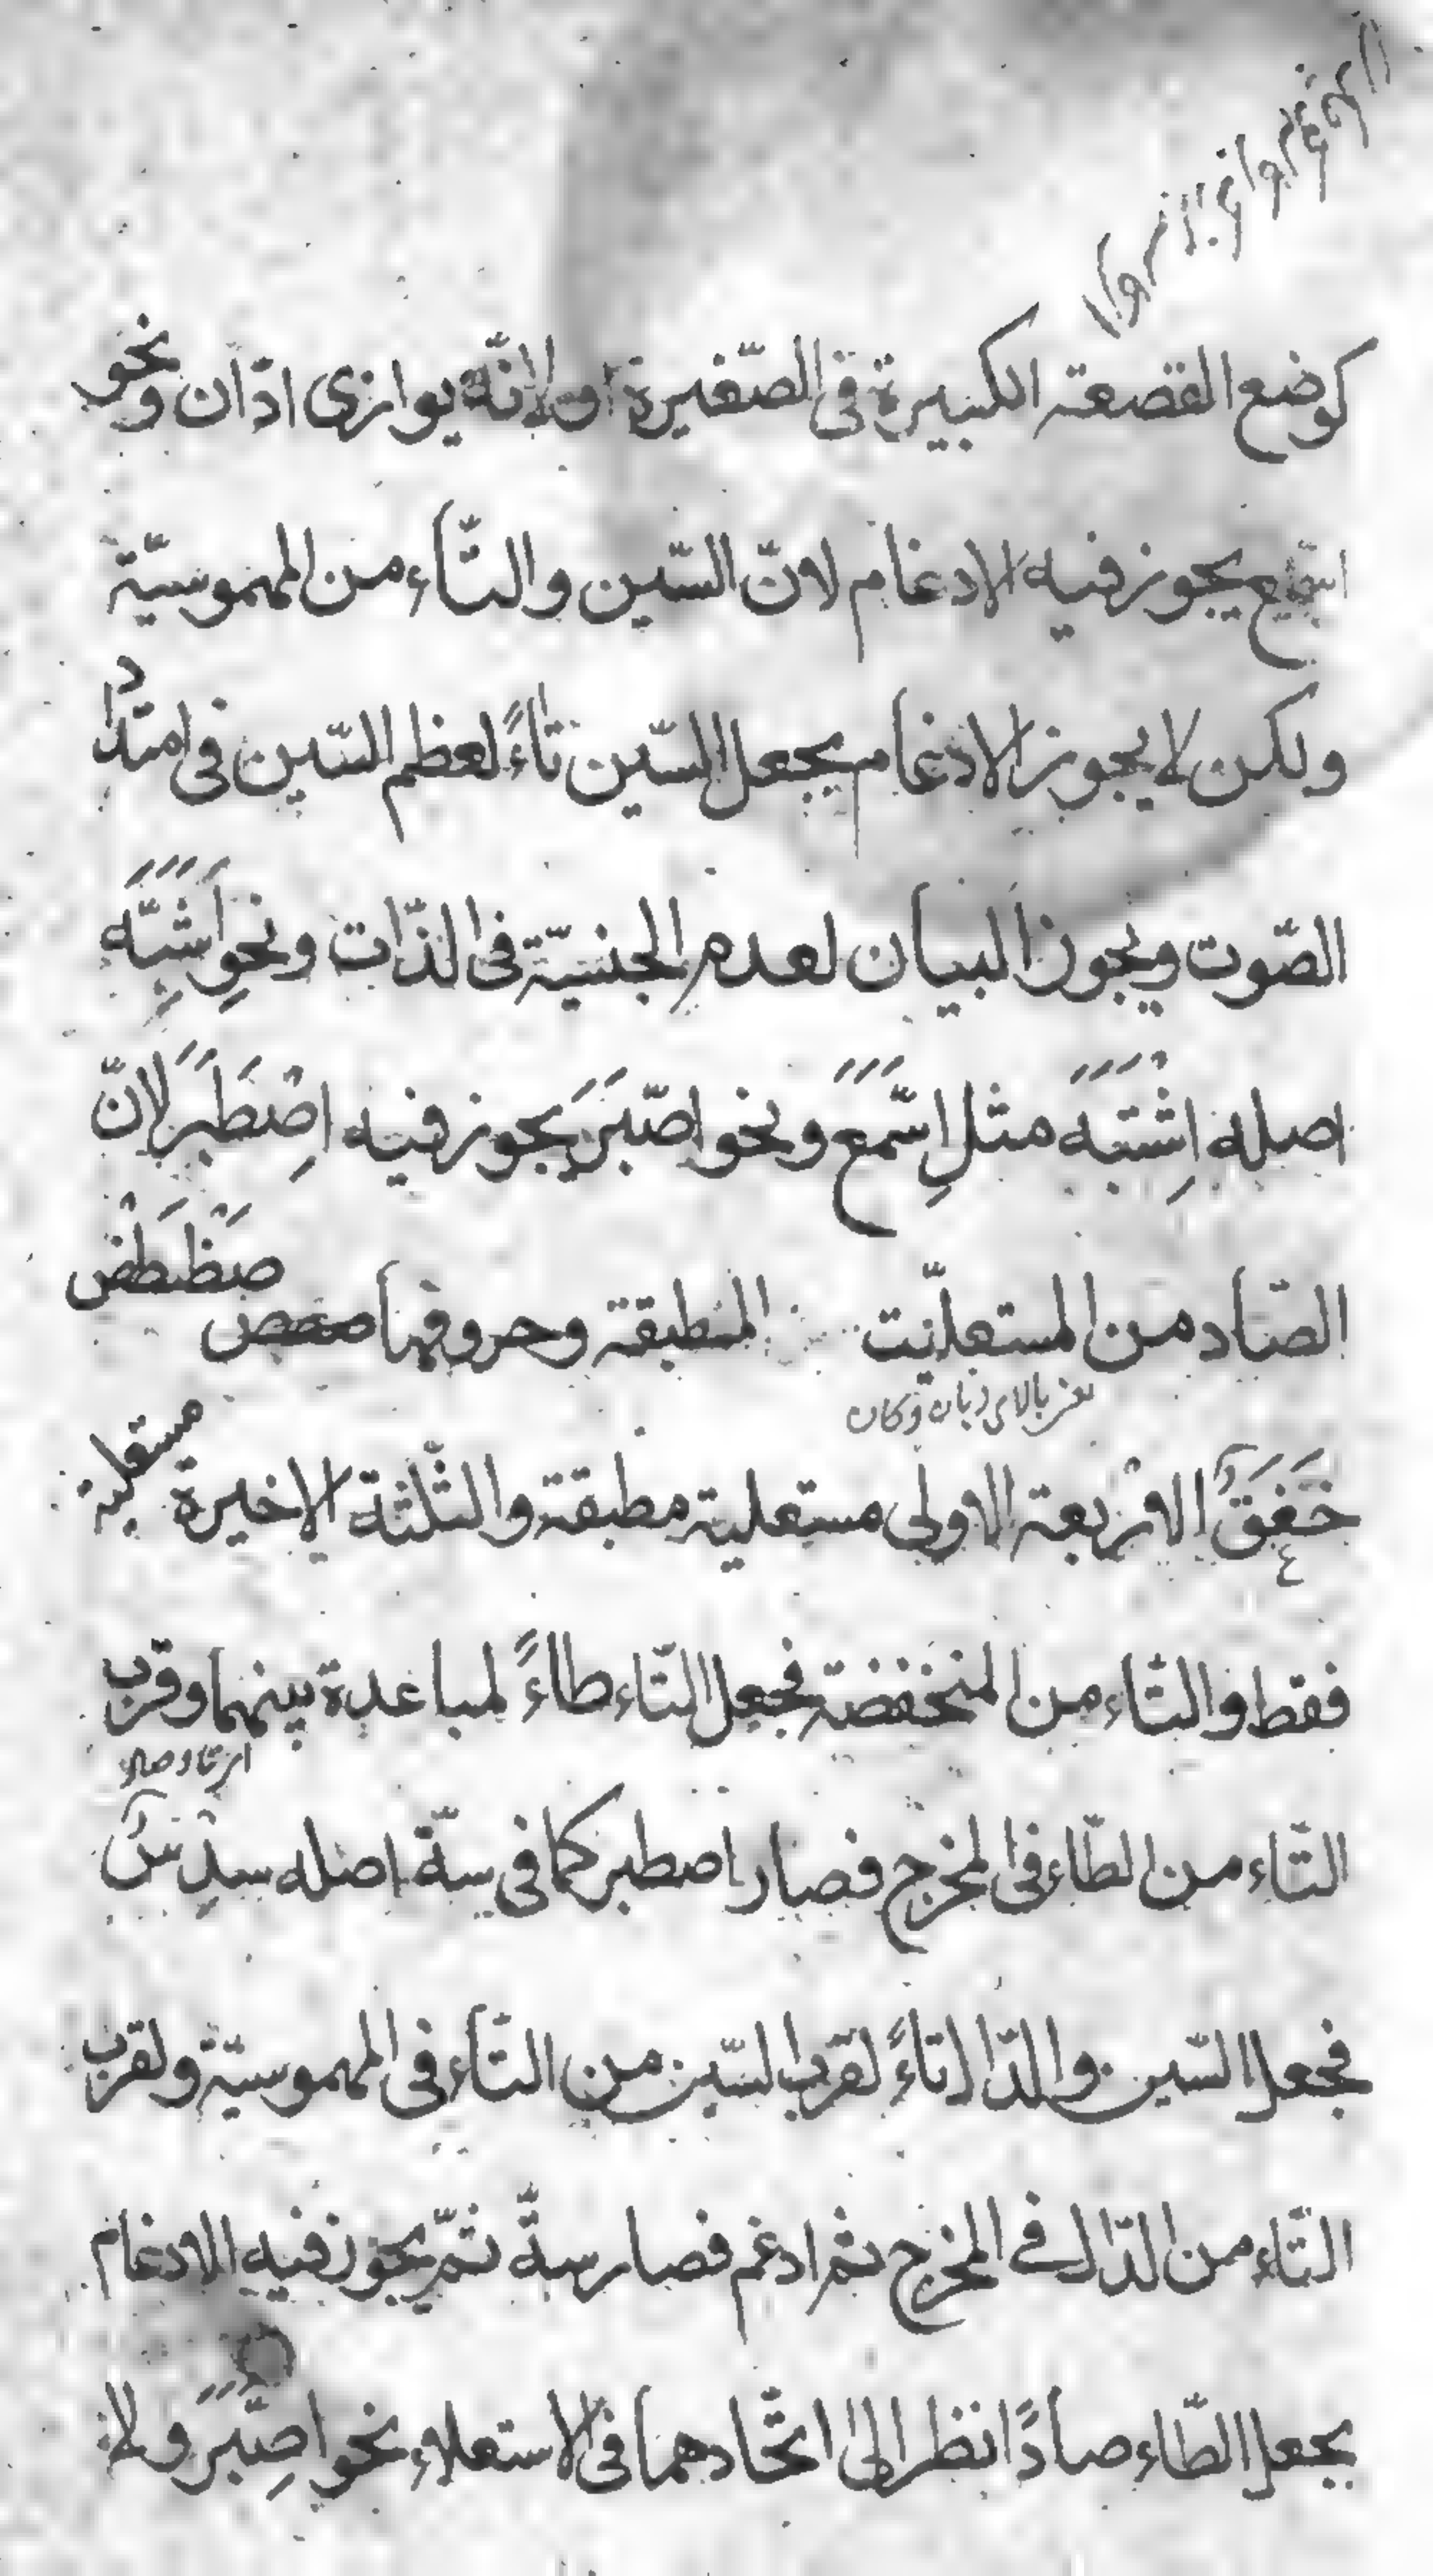 كوضع القصعة الكبيرة فى الصّغيرة او لانّه يوازى ادّان ونحو
اسّمع يجوز فيه الادغام لانّ السّين والتّاء من المهموسيّة
ولكن لا يجوز الادغام بجعل السّين تاءً لعظم السّين فى امتداد
الصّوت ويجوز البيان لعدم الجنسيّة فى الذّات ونحو اشَّبَهَ
اصله اِشْتَبَهَ مثل اِسَّمَعَ ونحو اصّبَرَ يجوز فيه اِصْطَبَرَ لانّ
الصّاد من المستعليّت المنطبقة وحروفها صَطْظَضْ
خَغَقَ الاربعة الاولى مستعلية مطبقة والثّلثة الاخيرة مستعلية
فقط والتّاء من المنخفضة فجعل التّاء طاءً لمباعدة بينهما وقرب
التّاء من الطّاء فى المخرج فصار اصطبر كما فى ستّة اصله سدس
فجعل السّين والدّال تاءً لقرب السّين من التّاء فى المهموسيّة ولقرب
التّاء من الدّال فى المخرج ثم ادغم فصار ستّة ثمّ يجوز فيه الادغام
بجعل الطّاء صادًا نظرا الى اتّحادهما فى الاستعلاء نحو اصّبَرَ ولا